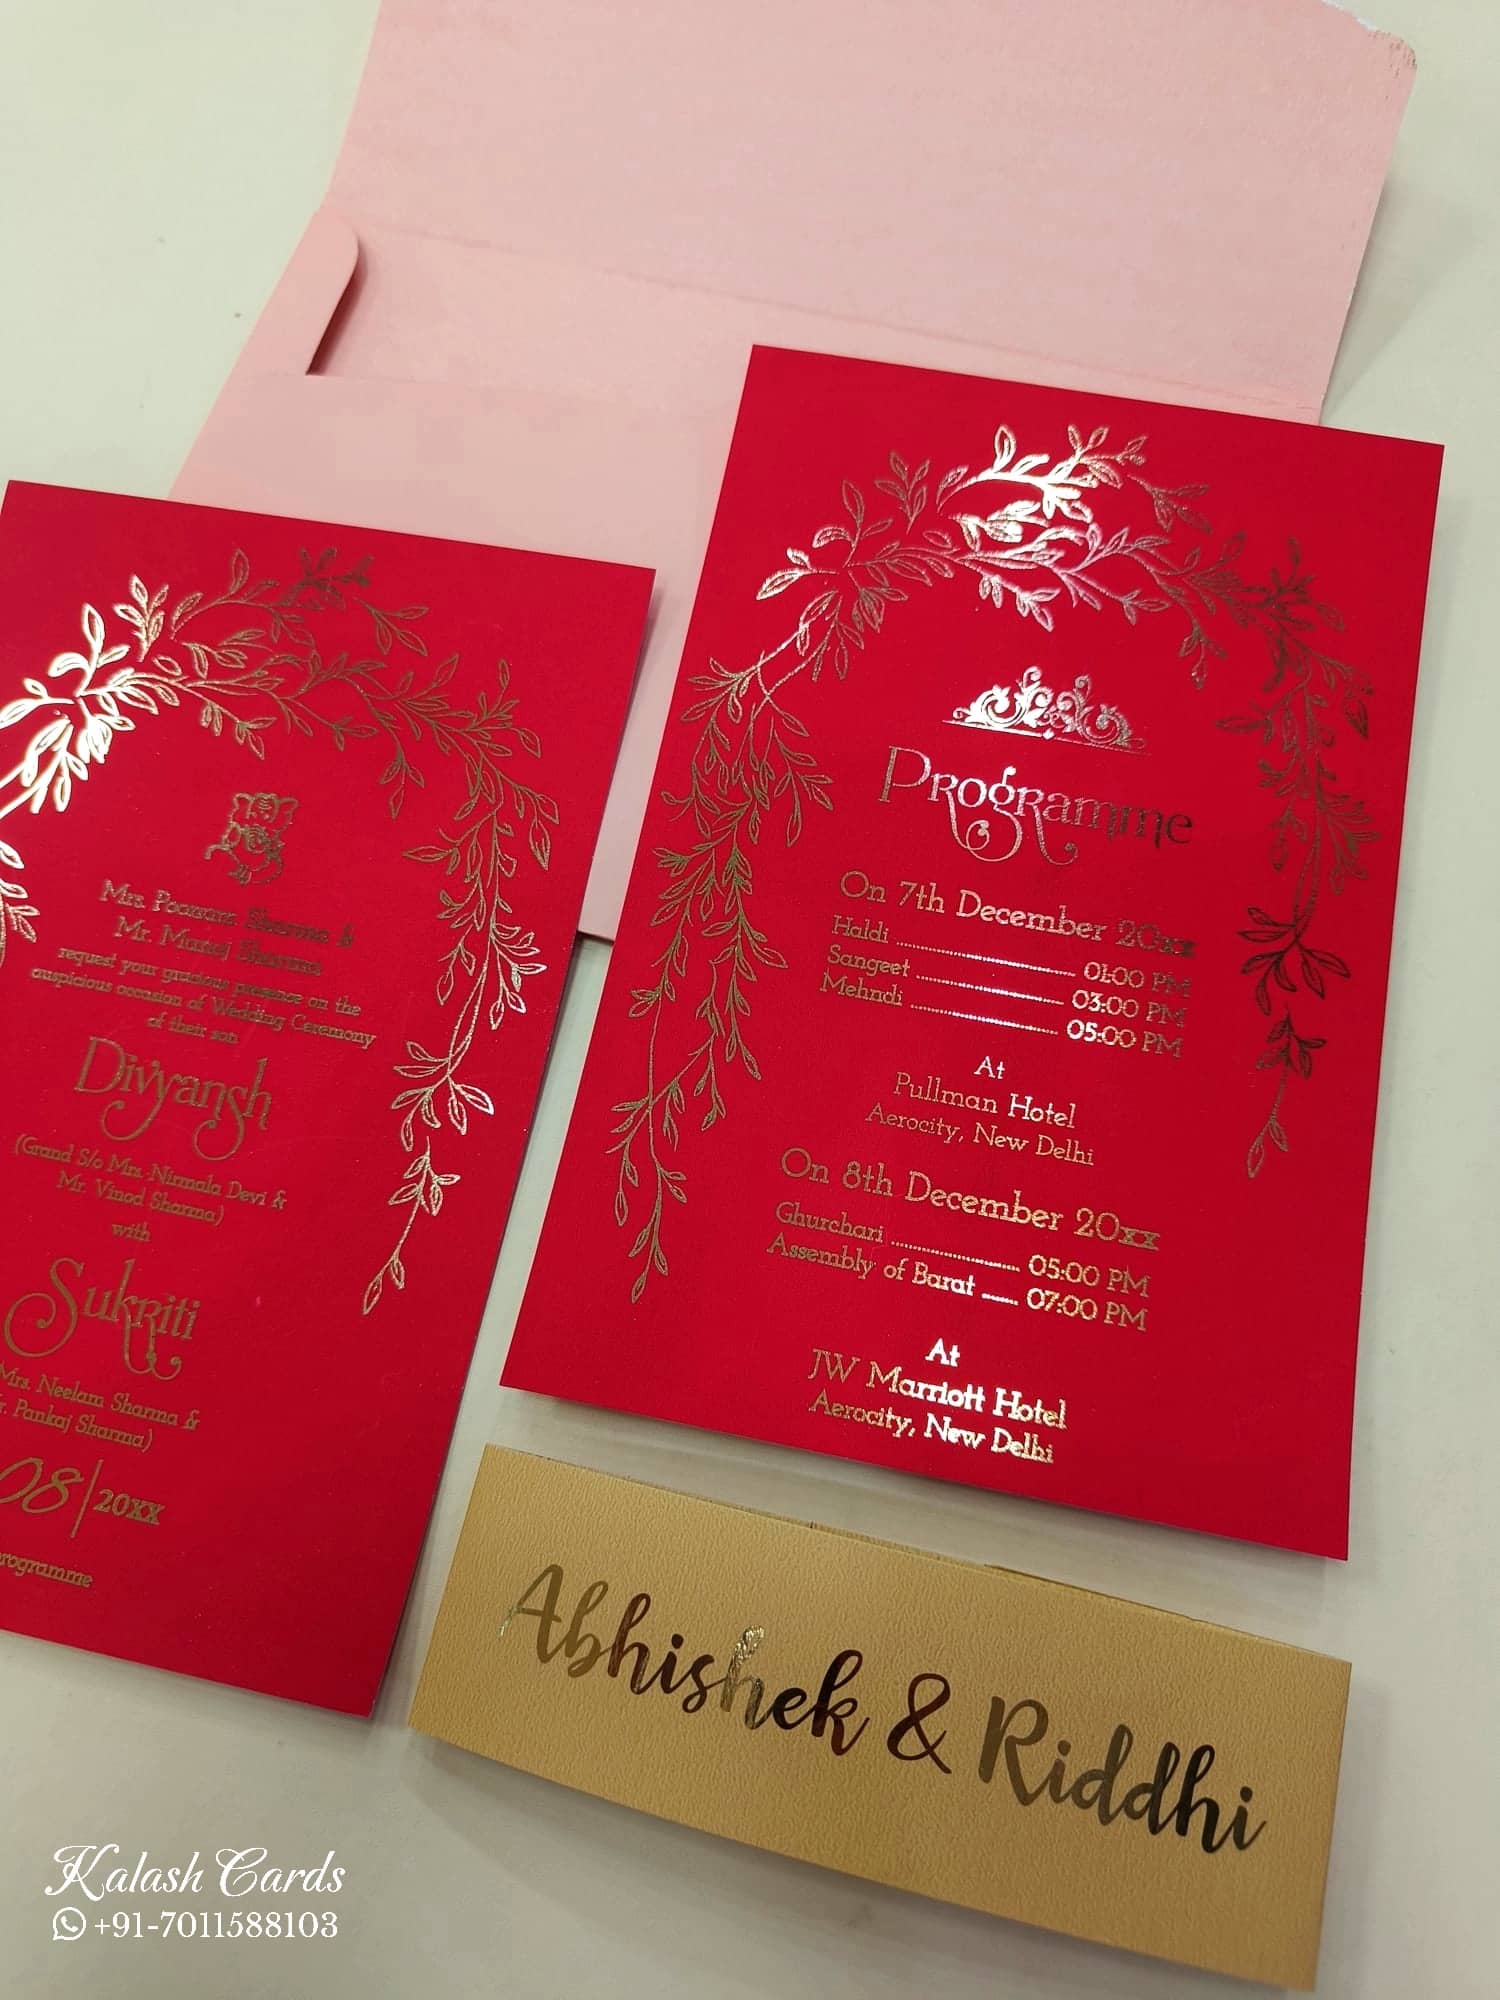 Mrs. Poonam Sharma &
Mr. Manoj Sharma
request your gracious presence on the
auspicious occasion of Wedding Ceremony
of their son
Divyansh
(Grand S/o Mrs. Nirmala Devi &
Mr. Vinod Sharma)
with
Sukriti
Mrs. Neelam Sharma &
r. Pankaj Sharma)
08|20xx
programme
Programme
On 7th December 20xx
Haldi .......... 01:00 PM
Sangeet .......... 03:00 PM
Mehndi .......... 05:00 PM
At
Pullman Hotel
Aerocity, New Delhi
On 8th December 20xx
Ghurchari .......... 05:00 PM
Assembly of Barat ..... 07:00 PM
At
JW Marriott Hotel
Aerocity, New Delhi
Abhishek & Riddhi
Kalash Cards
+91-7011588103